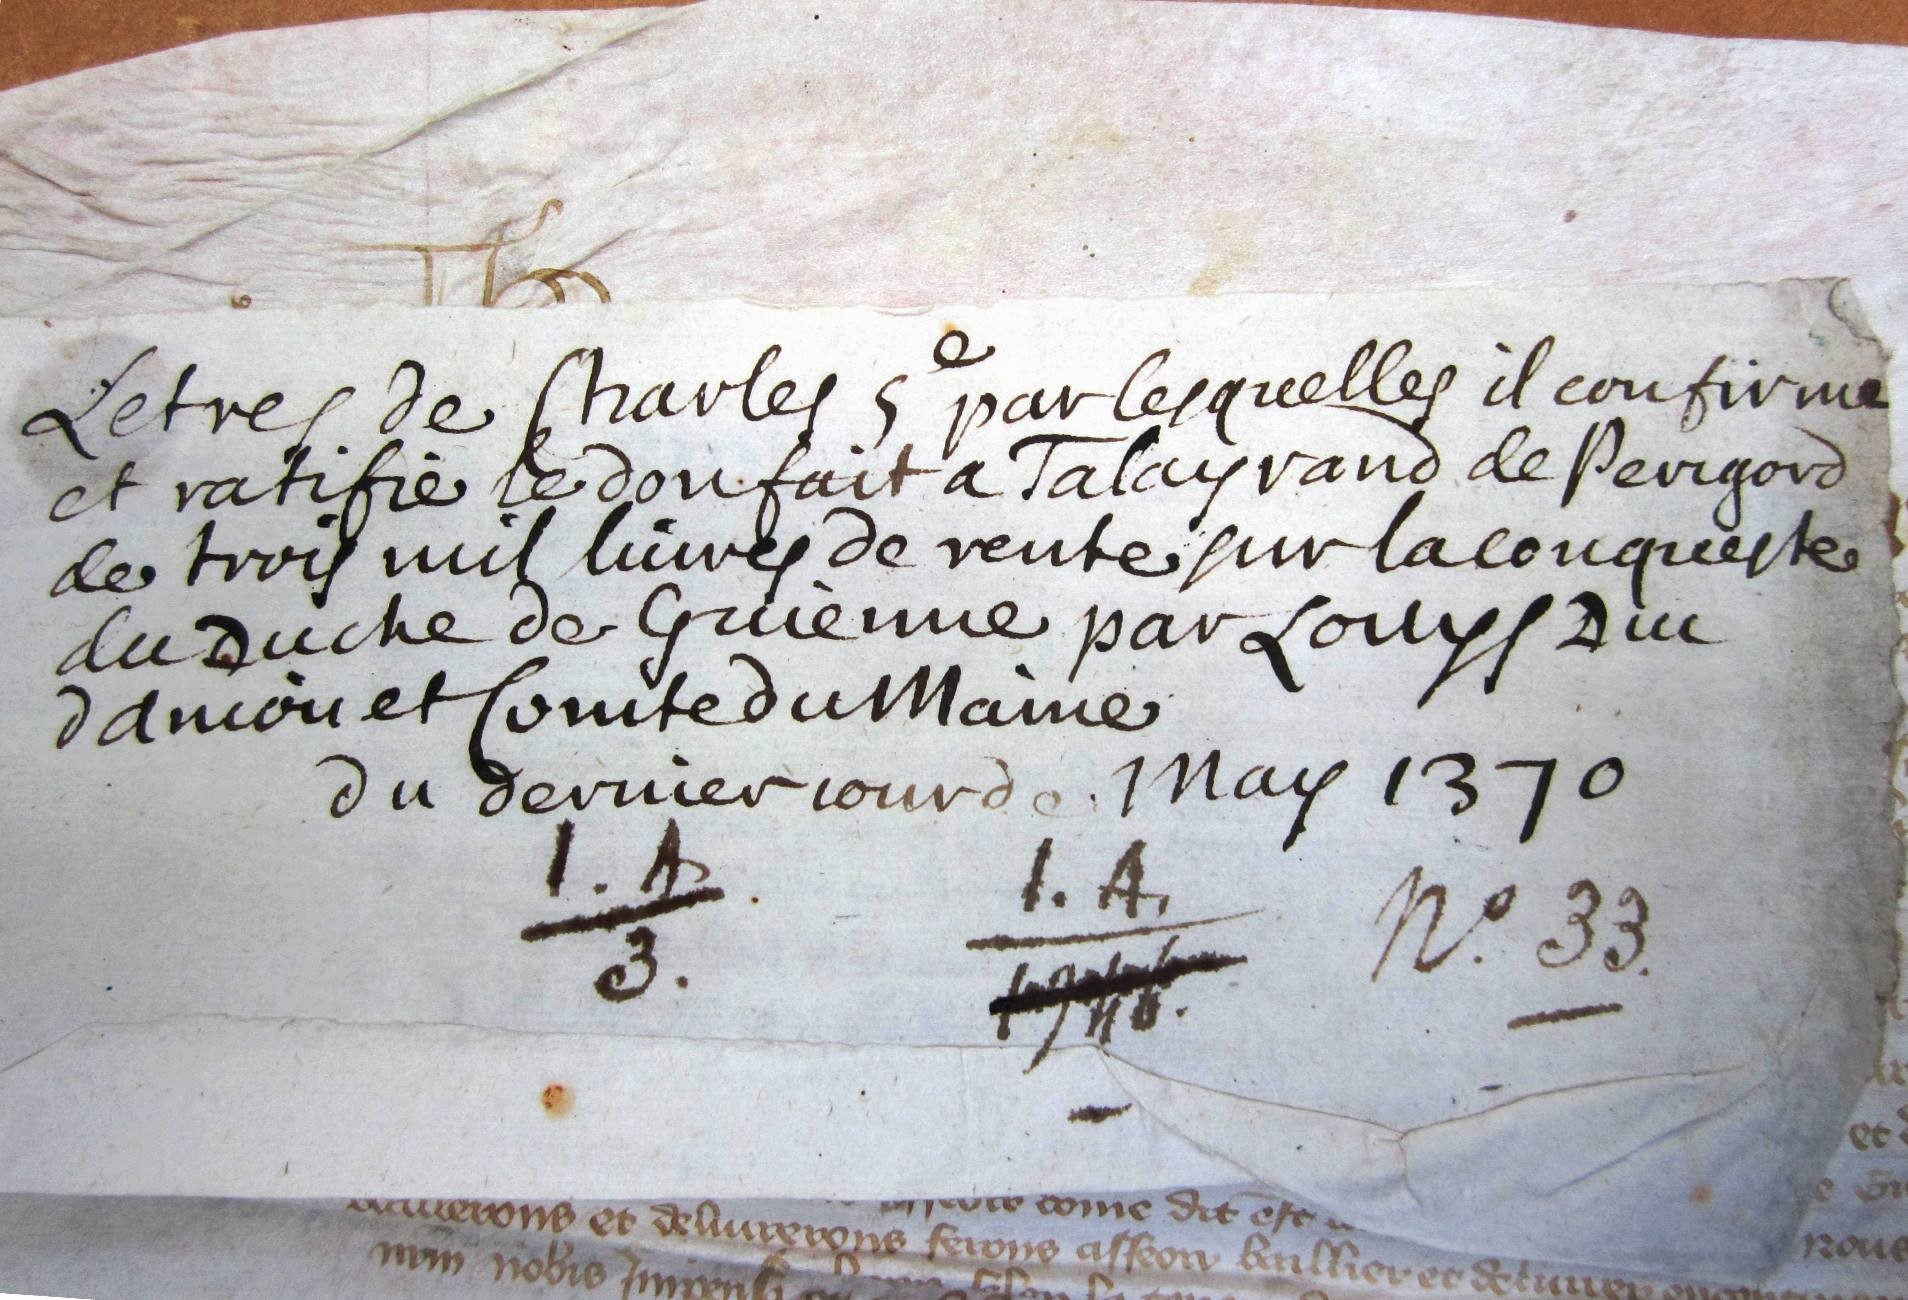 Letres de Charles 5e par lesquelles il confirme
et ratifie le don fait a Talayrand de Perigord
de trois mil liures de rente sur la conqueste
du Duche de Guienne par Louys Duc
daniou et Comte du Maine
du dernier iour de May 1370
1. A.
3.
1. A.
No. 33.
come dit est
et deliurerons ferons asseoir baillier et deliurer
nobis
et
nous